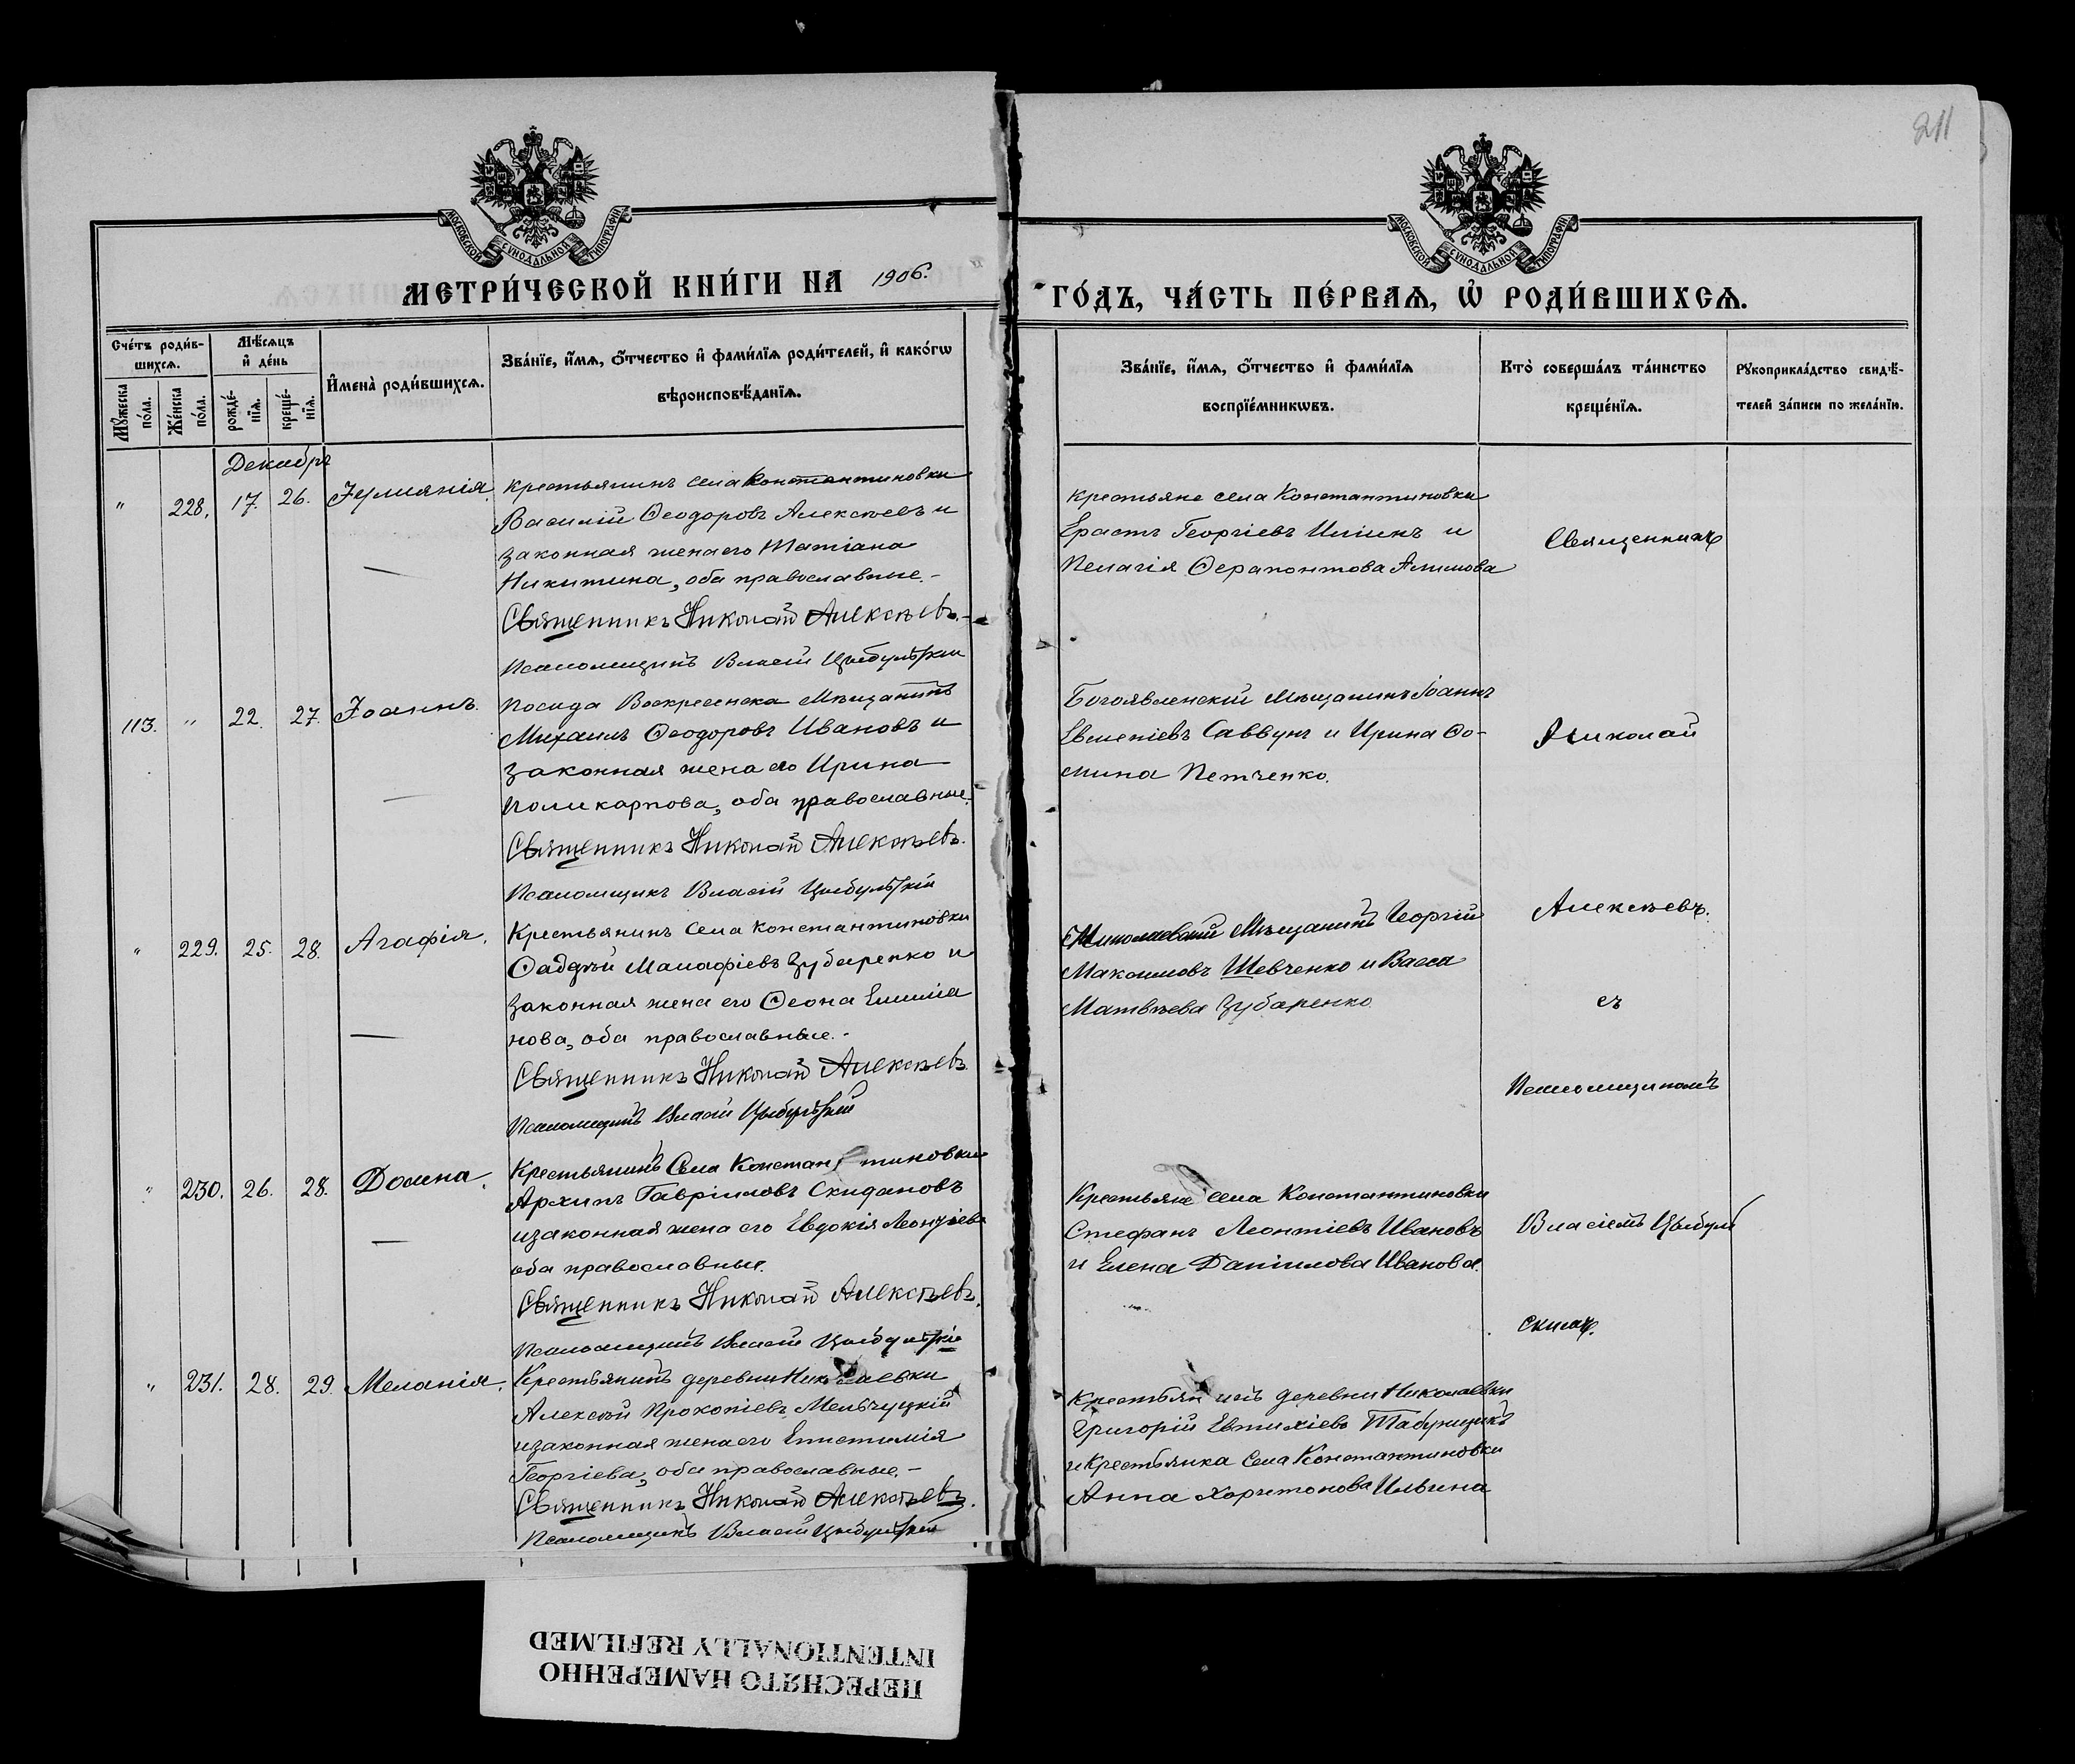 211
МОСКОВСКОЙ СѴНОДАЛЬНОЙ ТИПОГРАФІИ
МОСКОВСКОЙ СѴНОДАЛЬНОЙ ТИПОГРАФІИ
МЕТРИ́ЧЕСКОЙ КНИ́ГИ НА 1906.
ГО́ДЪ, ЧА́СТЬ ПЕ́РВАѦ, Ѡ҆ РОДИ́ВШИХСѦ.
Сче́тъ роди́в-
шихсѧ.
Мꙋ́жеска по́ла.
Же́нска по́ла.
Мѣ́сѧцъ
и҆ де́нь
рожде́-нїѧ.
креще́-нїѧ.
И҆мена̀ роди́вшихсѧ.
Зва́нїе, и҆́мѧ, ѻ҆́тчество и҆ фами́лїѧ роди́телей, и҆ како́гѡ
вѣроисповѣ́данїѧ.
Зва́нїе, и҆́мѧ, ѻ҆́тчество и҆ фами́лїѧ
воспрїе́мникѡвъ.
Кто̀ соверша́лъ та́инство
креще́нїѧ.
Рꙋкоприкла́дство свидѣ́-
телей за́писи по жела́нїю.
Декабрь
" 228. 17. 26.
крестьянинъ села Константиновки
Василій Ѳеодоровъ Алексѣевъ и
законная жена его Татіана
Никитина, оба православные.-
Священникъ Николай Алексѣевъ.-
Псаломщикъ Власій Цыбульскій
крестьяне села Константиновки
Ерастъ Георгіевъ Ильинъ и
Пелагія Ѳерапонтова
Священникъ
113. " 22. 27. Іоаннъ.
Посада Воскресенска Мѣщанинъ
Михаилъ Ѳеодоровъ Ивановъ и
законная жена его Ирина
Поликарпова, оба православные.
Священникъ Николай Алексѣевъ.
Псаломщикъ Власій Цыбульскій
Богоявленскій Мѣщанинъ Іоаннъ
Евменіевъ Саввунъ и Ирина Ѳо-
мина Петченко.
Николай
" 229. 25. 28. Агафія.
Крестьянинъ села Константиновки
Ѳаддѣй Малафіевъ Зубаренко и
законная жена его Ѳеона Емиліа
нова, оба православные.-
Священникъ Николай Алексѣевъ
Псаломщикъ Власій Цыбульскій
Николаевскій Мѣщанинъ Георгій
Максимовъ Шевченко и Васса
Матвѣева Зубаренко
Алексѣевъ.
съ
Псаломщикомъ
" 230. 26. 28. Домна.
Крестьянинъ Села Константиновки
Архипъ Гавріиловъ Скидановъ
и законная жена его Евдокія Леонтіева
оба православные.
Священникъ Николай Алексѣевъ.
Псаломщикъ Власій Цыбульскій
Крестьяне села Константиновки
Стефанъ Леонтіевъ Ивановъ
и Елена Даніилова Иванова.
Власіемъ Цыбуль
скимъ.
" 231. 28. 29. Меланія.
Крестьянинъ деревни Николаевки
Алексѣй Прокопіевъ Мельчуцкій
и законная жена его Епистимія
Георгіева, оба православные.-
Священникъ Николай Алексѣевъ.
Псаломщикъ Власій Цыбульскій
Крестьянинъ деревни Николаевки
Григорій Евтихіевъ Табунщикъ
и Крестьянка Села Константиновки
Анна Харитонова Ильина
ПЕРЕСНЯТО НАМЕРЕННО
INTENTIONALLY REFILMED